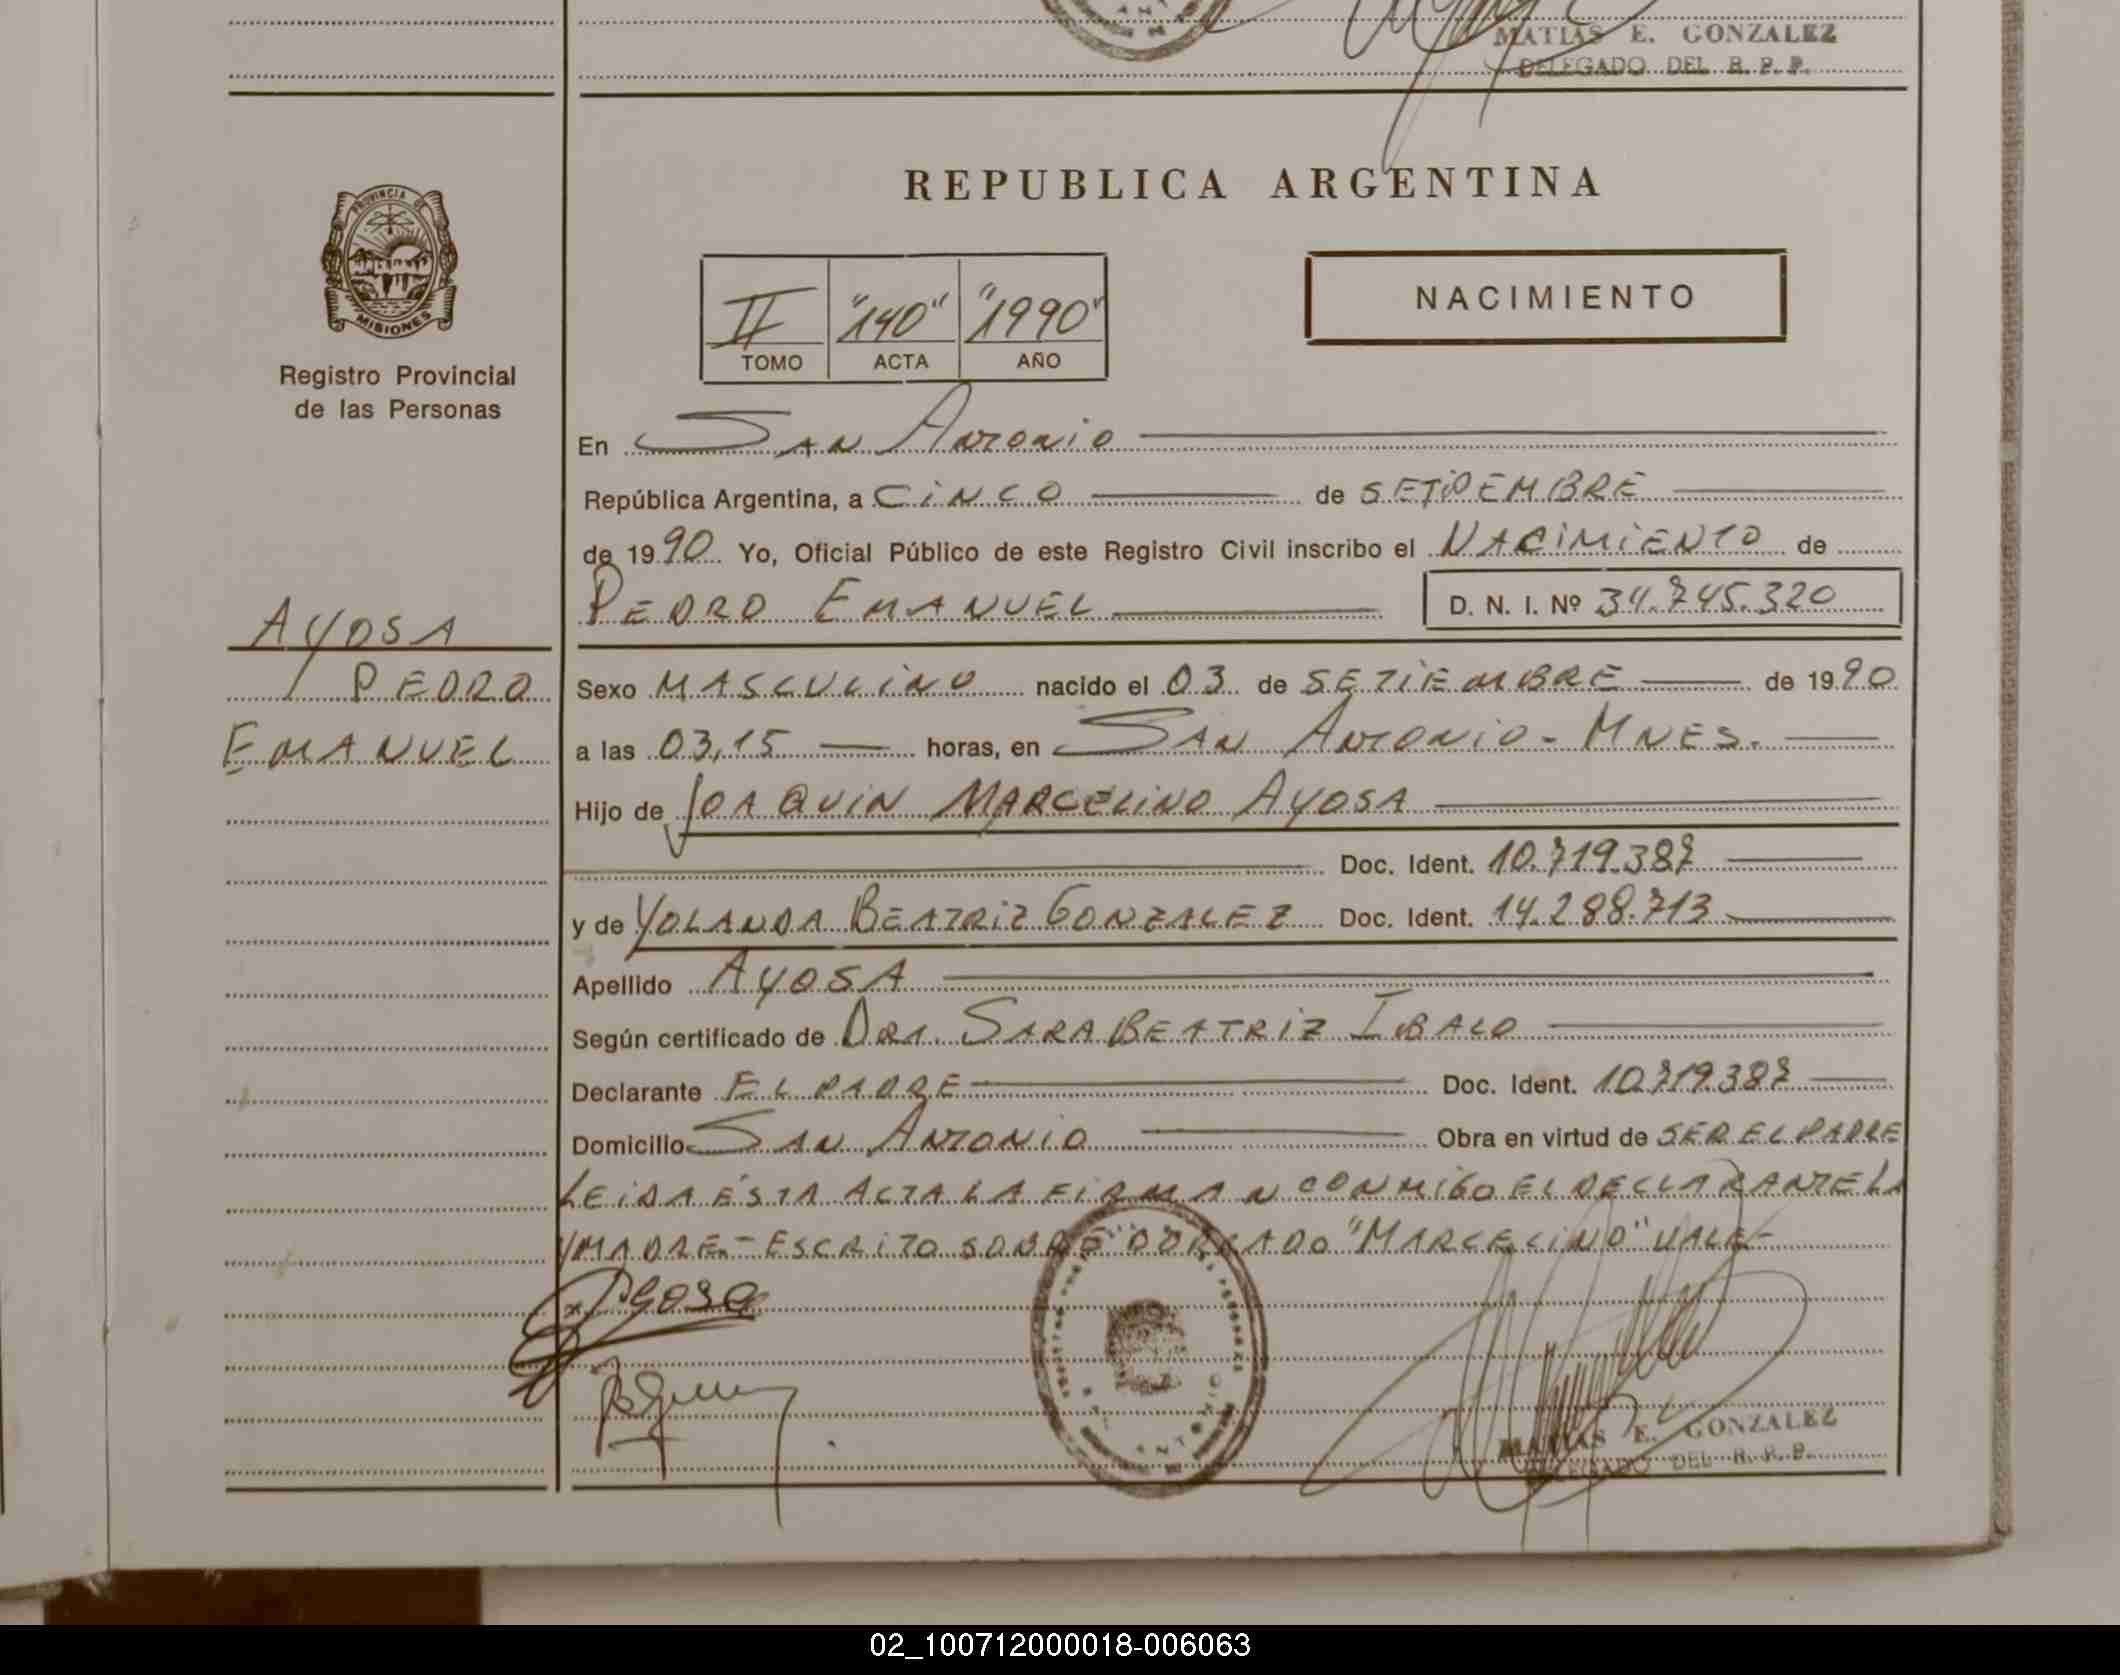 MATIAS E. GONZALEZ
DELEGADO DEL R. P. P.
REPUBLICA ARGENTINA
PROVINCIA DE
MISIONES
Registro Provincial
de las Personas
II "140" "1990"
TOMO ACTA AÑO
NACIMIENTO
En SAN ANTONIO
República Argentina, a CINCO de SETIEMBRE
de 1990 Yo, Oficial Público de este Registro Civil inscribo el NACIMIENTO de
PEDRO EMANUEL D. N. I. Nº 34.745.320
AYOSA
PEDRO
EMANUEL
Sexo MASCULINO nacido el 03 de SETIEMBRE de 1990
a las 03,15 horas, en SAN ANTONIO - MNES.
Hijo de JOAQUIN MARCELINO AYOSA
Doc. Ident. 10.719.387
y de YOLANDA BEATRIZ GONZALEZ Doc. Ident. 14.288.713
Apellido AYOSA
Según certificado de DRA. SARA BEATRIZ IBALO
Declarante EL PADRE Doc. Ident. 10.719.387
Domicilio SAN ANTONIO Obra en virtud de SER EL PADRE
LEIDA ÉSTA ACTA LA FIRMAN CONMIGO EL DECLARANTE LA
MADRE - ESCRITO SOBRE BORRADO "MARCELINO" VALE -
Ayosa
MATIAS E. GONZALEZ
DELEGADO DEL R. P. P.
02_100712000018-006063